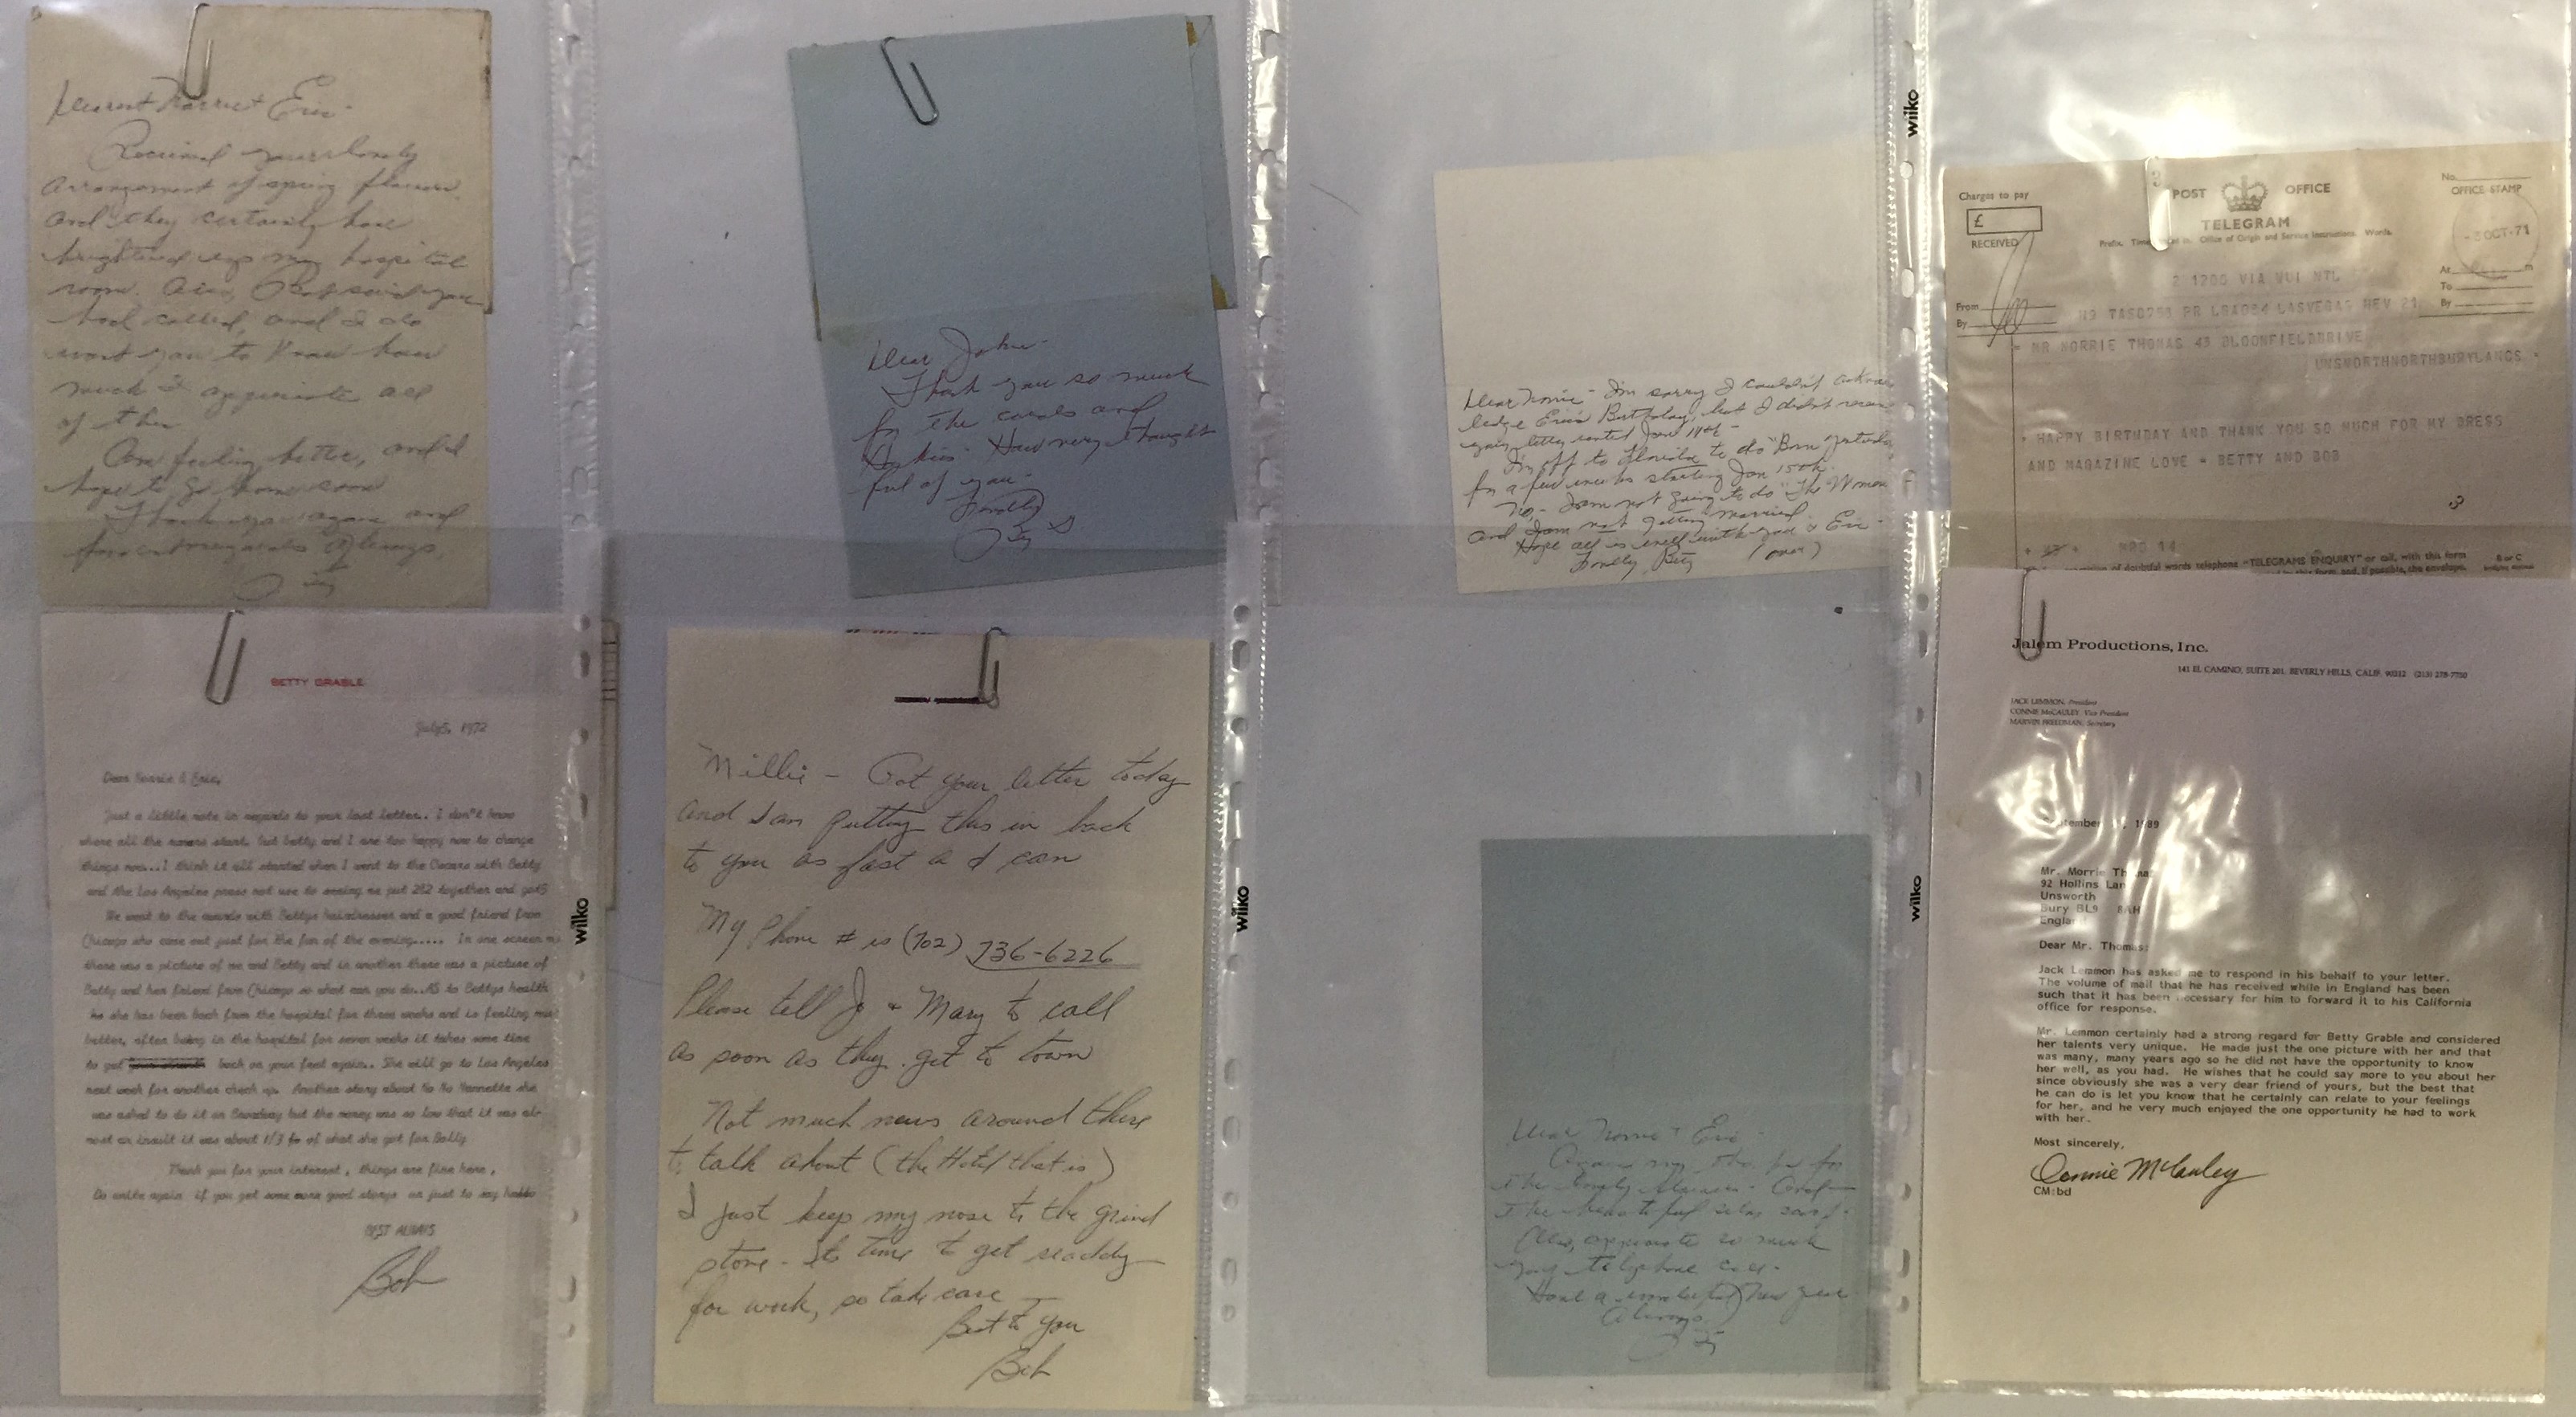 Dearest Norrie + Eric -
Received your lovely
arrangement of spring flowers.
and they certainly have
brightened up my hospital
room. Also, Bob said you
had called, and I do
want you to know how
much I appreciate all
of this.
Am feeling better, and I
hope to go home soon
Thank you again and
fondest regards Always,
Dear John -
Thank you so much
for the cards and
Hankies - How very thought
ful of you -
Fondly
Dear Norrie - I'm sorry I couldn't acknow
ledge Eric's Birthday, but I didn't receive
your letter until Jan 14th -
I'm off to Florida to do "Born Yesterday
for a few weeks starting Jan 15th.
No, - I am not going to do "The Women
and I am not getting married
Hope all is well with you & Eric -
Fondly Betty (over)
wilko
Charges to pay
£
RECEIVED
POST OFFICE
TELEGRAM
Prefix. Time Office of Origin and Service Instructions. Words.
No.
OFFICE STAMP
OCT-71
At m
To
By
From
By
2 1206 VIA WUI NTL
LASVEGAS NEV 21
MR NORRIE THOMAS 43 BLOOMFIELDDRIVE
UNSWORTHNORTHBURYLANCS
HAPPY BIRTHDAY AND THANK YOU SO MUCH FOR MY DRESS
AND MAGAZINE LOVE = BETTY AND BOB
of doubtful words telephone "TELEGRAMS ENQUIRY" or call, with this form
and, if possible, the envelope.
B or C
BETTY GRABLE
July5, 1972
Dear Norrie & Eric,
Just a little note in regards to your last letter.. I don't know
where all the rumors start, but betty and I are too happy now to change
things now...I think it all started when I went to the Oscars with Betty
and the Los Angeles press not use to seeing me put 2&2 together and got5
We went to the awards with Bettys hairdresser and a good friend from
Chicago who came out just for the fun of the evening..... In one screen
there was a picture of me and Betty and in another there was a picture of
Betty and her friend from Chicago so what can you do..AS to Bettys health
she has been back from the hospital for three weeks and is feeling
better, after being in the hospital for seven weeks it takes some time
to get back on your feet again.. She will go to Los Angeles
next week for another check up. Another story about No No Nannette she
was asked to do it on Broadway but the money was so low that it was al-
most an insult it was about 1/3 of what she got for Dolly
Thank you for your interest, things are fine here,
Do write again if you get some more good storys or just to say hello
BEST ALWAYS
Bob
wilko
Millie - Got your letter today
and I am putting this in back
to you as fast a I can
My Phone # is (702) 736-6226
Please tell Jo + Mary to call
as soon as they get to town
Not much news around there
to talk about (the Hotel that is)
I just keep my nose to the grind
stone - Its time to get readdy
for work, so take care -
Best to you
Bob
wilko
Dear Norrie + Eric -
Again my thanks for
the lovely flowers - and
the beautiful scarf -
Also, appreciate so much
your telephone call -
Have a wonderful New Year
Always
wilko
Jalem Productions, Inc.
141 EL CAMINO, SUITE 201, BEVERLY HILLS, CALIF. 90212 (213) 278-7750
JACK LEMMON, President
CONNIE McCAULEY, Vice President
MARVIN FREEDMAN, Secretary
1989
Mr. Morrie Thomas
92 Hollins Lane
Unsworth
Bury BL9 8AH
England
Dear Mr. Thomas:
Jack Lemmon has asked me to respond in his behalf to your letter.
The volume of mail that he has received while in England has been
such that it has been necessary for him to forward it to his California
office for response.
Mr. Lemmon certainly had a strong regard for Betty Grable and considered
her talents very unique. He made just the one picture with her and that
was many, many years ago so he did not have the opportunity to know
her well, as you had. He wishes that he could say more to you about her
since obviously she was a very dear friend of yours, but the best that
he can do is let you know that he certainly can relate to your feelings
for her, and he very much enjoyed the one opportunity he had to work
with her.
Most sincerely,
Connie McCauley
CM:bd